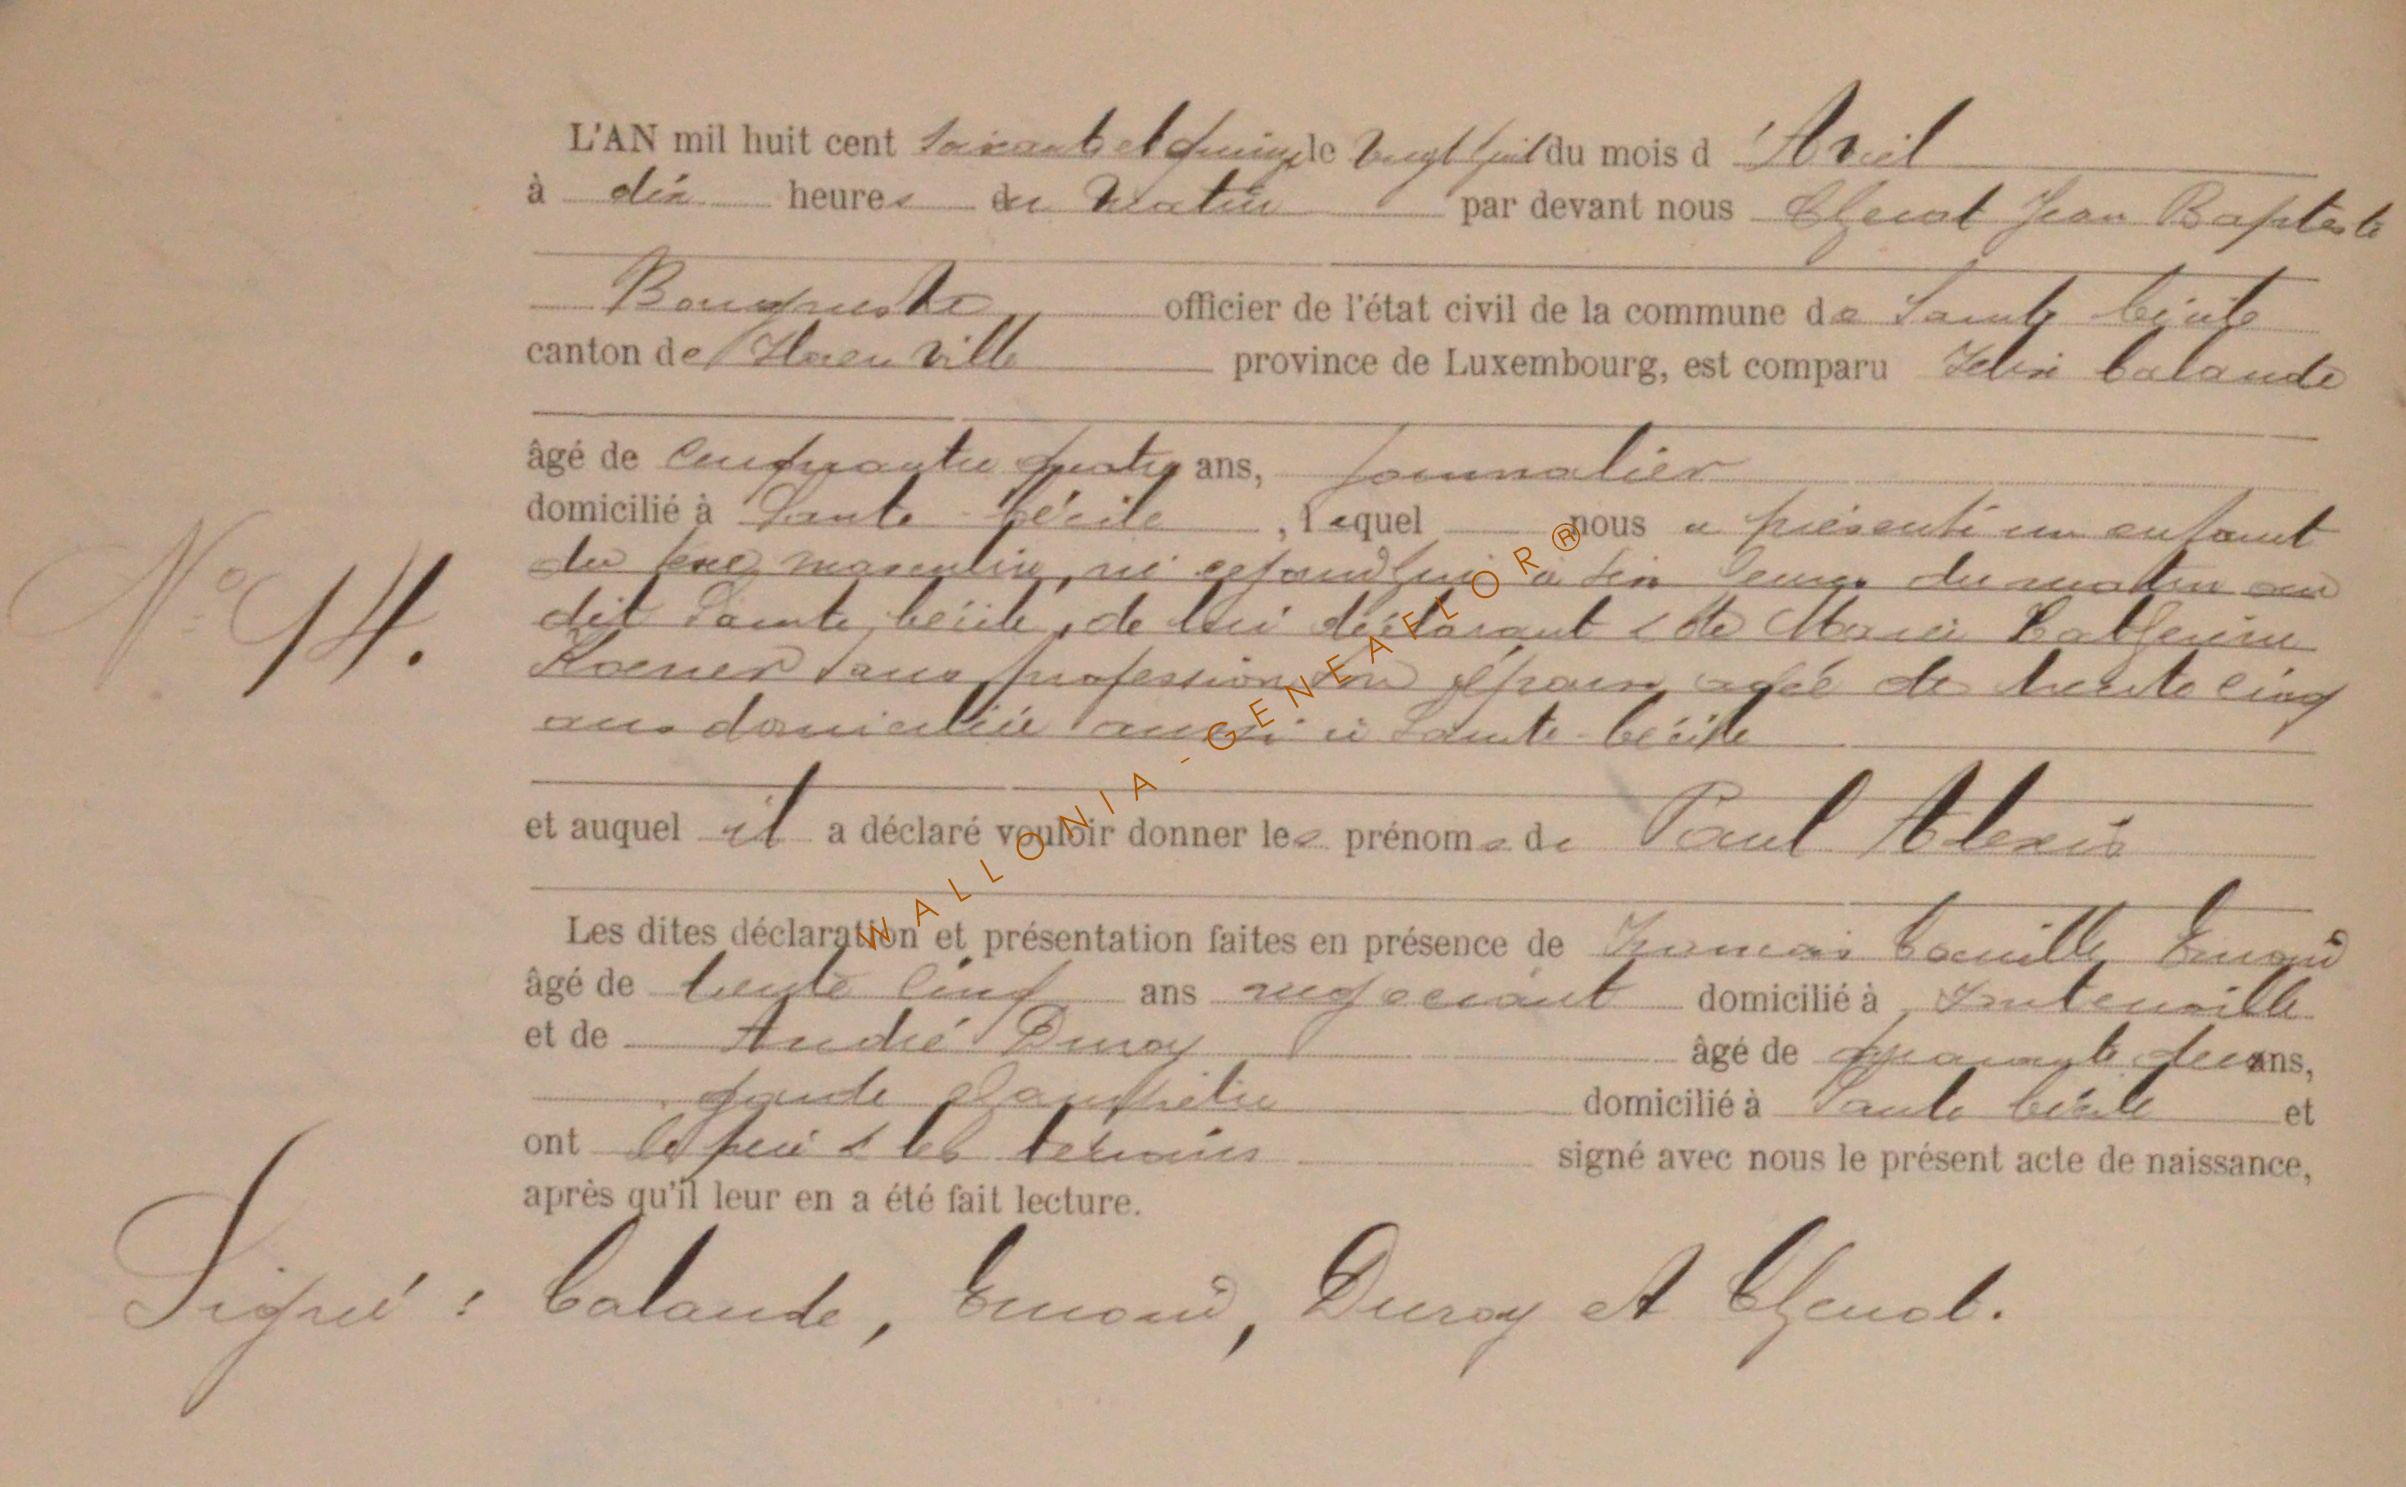 L'AN mil huit cent soixante et quinze le vingt huit du mois d'Avril
à dix heures du matin par devant nous Thenot Jean Baptiste
officier de l'état civil de la commune de Sainte Cécile
canton de Florenville province de Luxembourg, est comparu Félix Calande
âgé de cinquante quatre ans, journalier
domicilié à Sainte-Cécile, lequel nous a présenté un enfant
du sexe masculin, né aujourd'hui à six heures du matin au
dit Sainte Cécile, de lui déclarant & de Marie Catherine
sans profession son épouse agée de trente cinq
ans domiciliée aussi à Sainte-Cécile
N° 14.
et auquel il a déclaré vouloir donner les prénoms de Paul Alexis
Les dites déclaration et présentation faites en présence de François Camille Emond
âgé de trente cinq ans negociant domicilié à Fontenoille
et de André Duroy âgé de quarante deux ans,
garde champêtre domicilié à Sainte Cécile et
ont le père & les témoins signé avec nous le présent acte de naissance,
après qu'il leur en a été fait lecture.
Signé : Calande, Emond, Duroy et Thenot.
WALLONIA - GENEAFLOR ®